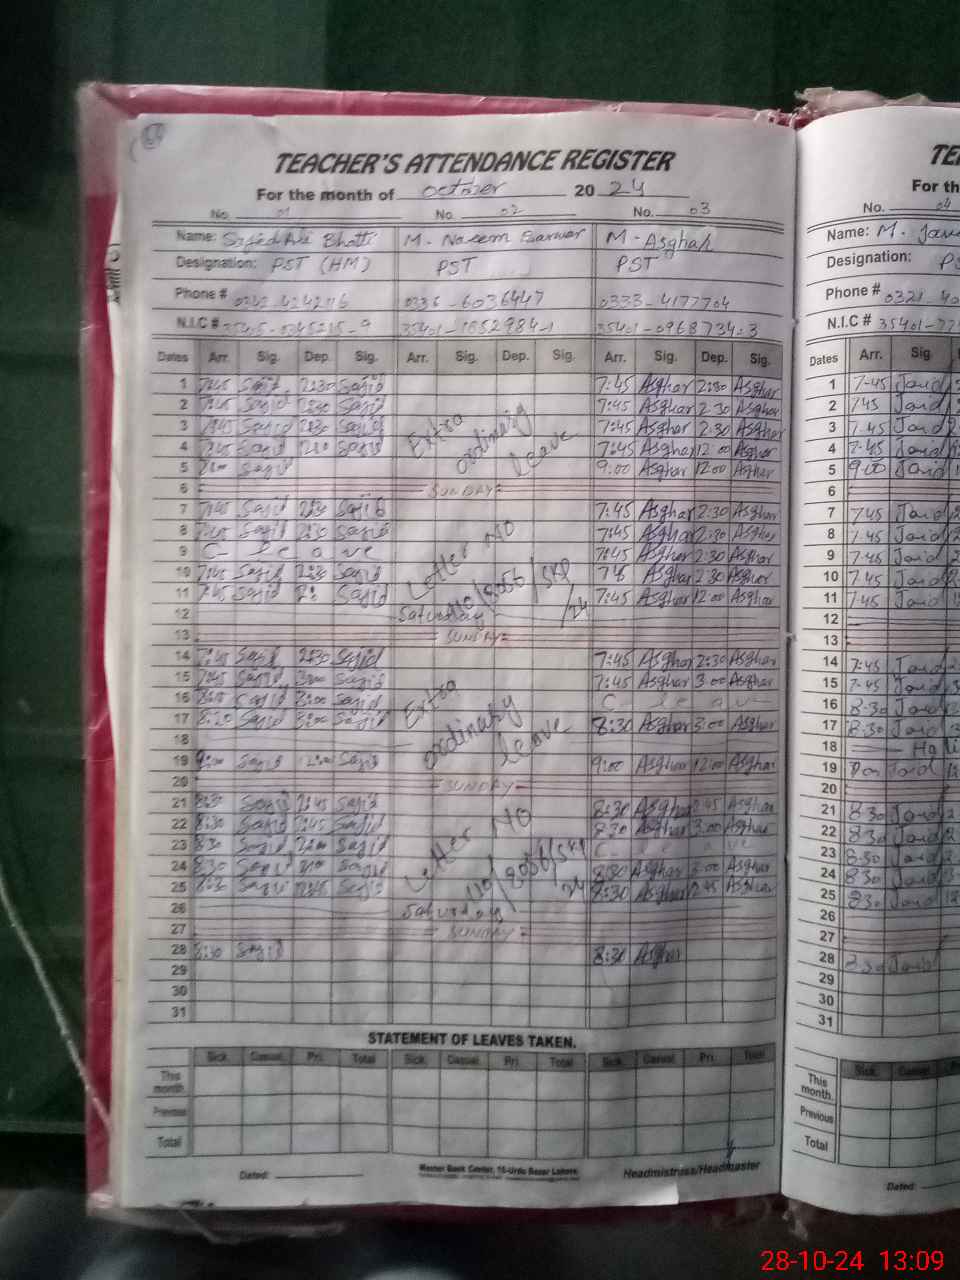 TEACHER'S ATTENDANCE REGISTER
For the month of October 2024
No. 01 No. 02 No. 03
Name: Sajid Ali Bhatti M. Naeem M. Asghar
Designation: PST (HM) PST PST
Phone # 0336-6036447 0333-4177704
N.I.C # 35401-1652984-1 35401-0968734-3
Dates Arr. Sig. Dep. Sig. Arr. Sig. Dep. Sig. Arr. Sig. Dep. Sig.
1 7:45 Sajid 2:30 Sajid 7:45 Asghar 2:30 Asghar
2 7:45 Sajid 2:30 Sajid 7:45 Asghar 2:30 Asghar
3 7:45 Sajid 2:30 Sajid Extra 7:45 Asghar 2:30 Asghar
4 7:45 Sajid 12:00 Sajid ordinary 7:45 Asghar 12:00 Asghar
5 9:00 Sajid leave 9:00 Asghar 12:00 Asghar
6 SUNDAY
7 7:45 Sajid 2:30 Sajid 7:45 Asghar 2:30 Asghar
8 7:45 Sajid 2:30 Sajid Letter NO 7:45 Asghar 2:30 Asghar
9 C- leave 7:45 Asghar 2:30 Asghar
10 7:45 Sajid 2:30 Sajid /8056/SKP 7:45 Asghar 2:30 Asghar
11 7:45 Sajid Sajid /24 7:45 Asghar 12:00 Asghar
12 Saturday
13 SUNDAY
14 7:45 Sajid 2:30 Sajid 7:45 Asghar 2:30 Asghar
15 7:45 Sajid 3:00 Sajid Extra 7:45 Asghar 3:00 Asghar
16 Sajid 3:00 Sajid ordinary C- leave
17 Sajid 3:00 Sajid leave 8:30 Asghar 3:00 Asghar
18
19 9:00 Sajid 12:00 Sajid 9:00 Asghar 12:00 Asghar
20 SUNDAY
21 8:30 Sajid 2:45 Sajid 8:30 Asghar 2:45 Asghar
22 8:30 Sajid 2:45 Sajid Letter NO 8:30 Asghar 3:00 Asghar
23 8:30 Sajid Sajid C- leave
24 8:30 Sajid Sajid /8056/SKP 8:30 Asghar 3:00 Asghar
25 8:30 Sajid Sajid 24 8:30 Asghar 2:45 Asghar
26 Saturday
27 SUNDAY
28 8:30 Sajid 8:30 Asghar
29
30
31
STATEMENT OF LEAVES TAKEN.
Sick. Casual. Pri. Total Sick. Casual. Pri. Total Sick. Casual. Pri. Total
This month.
Previous
Total
Dated: Master Book Center, 16-Urdu Bazar Lahore. Headmistress/Headmaster
TE
For th
No. 04
Name: M.
Designation:
Phone # 0321
N.I.C # 35401
Dates Arr. Sig.
1 7-45 Javid
2 7.45 Javid
3 7.45 Javid
4 7.45 Javid
5 9.00 Javid
6
7 7.45 Javid
8 7.45 Javid
9 7.45 Javid
10 7.45 Javid
11 7.45 Javid
12
13
14 7.45 Javid
15 7.45 Javid
16 8.30 Javid
17 8.30 Javid
18
19 Javid
20
21 8.30 Javid
22 8.30 Javid
23 8.30 Javid
24 8.30 Javid
25 8.30 Javid
26
27
28 8.30 Javid
29
30
31
Sick. Casual.
This month.
Previous
Total
Dated:
28-10-24 13:09